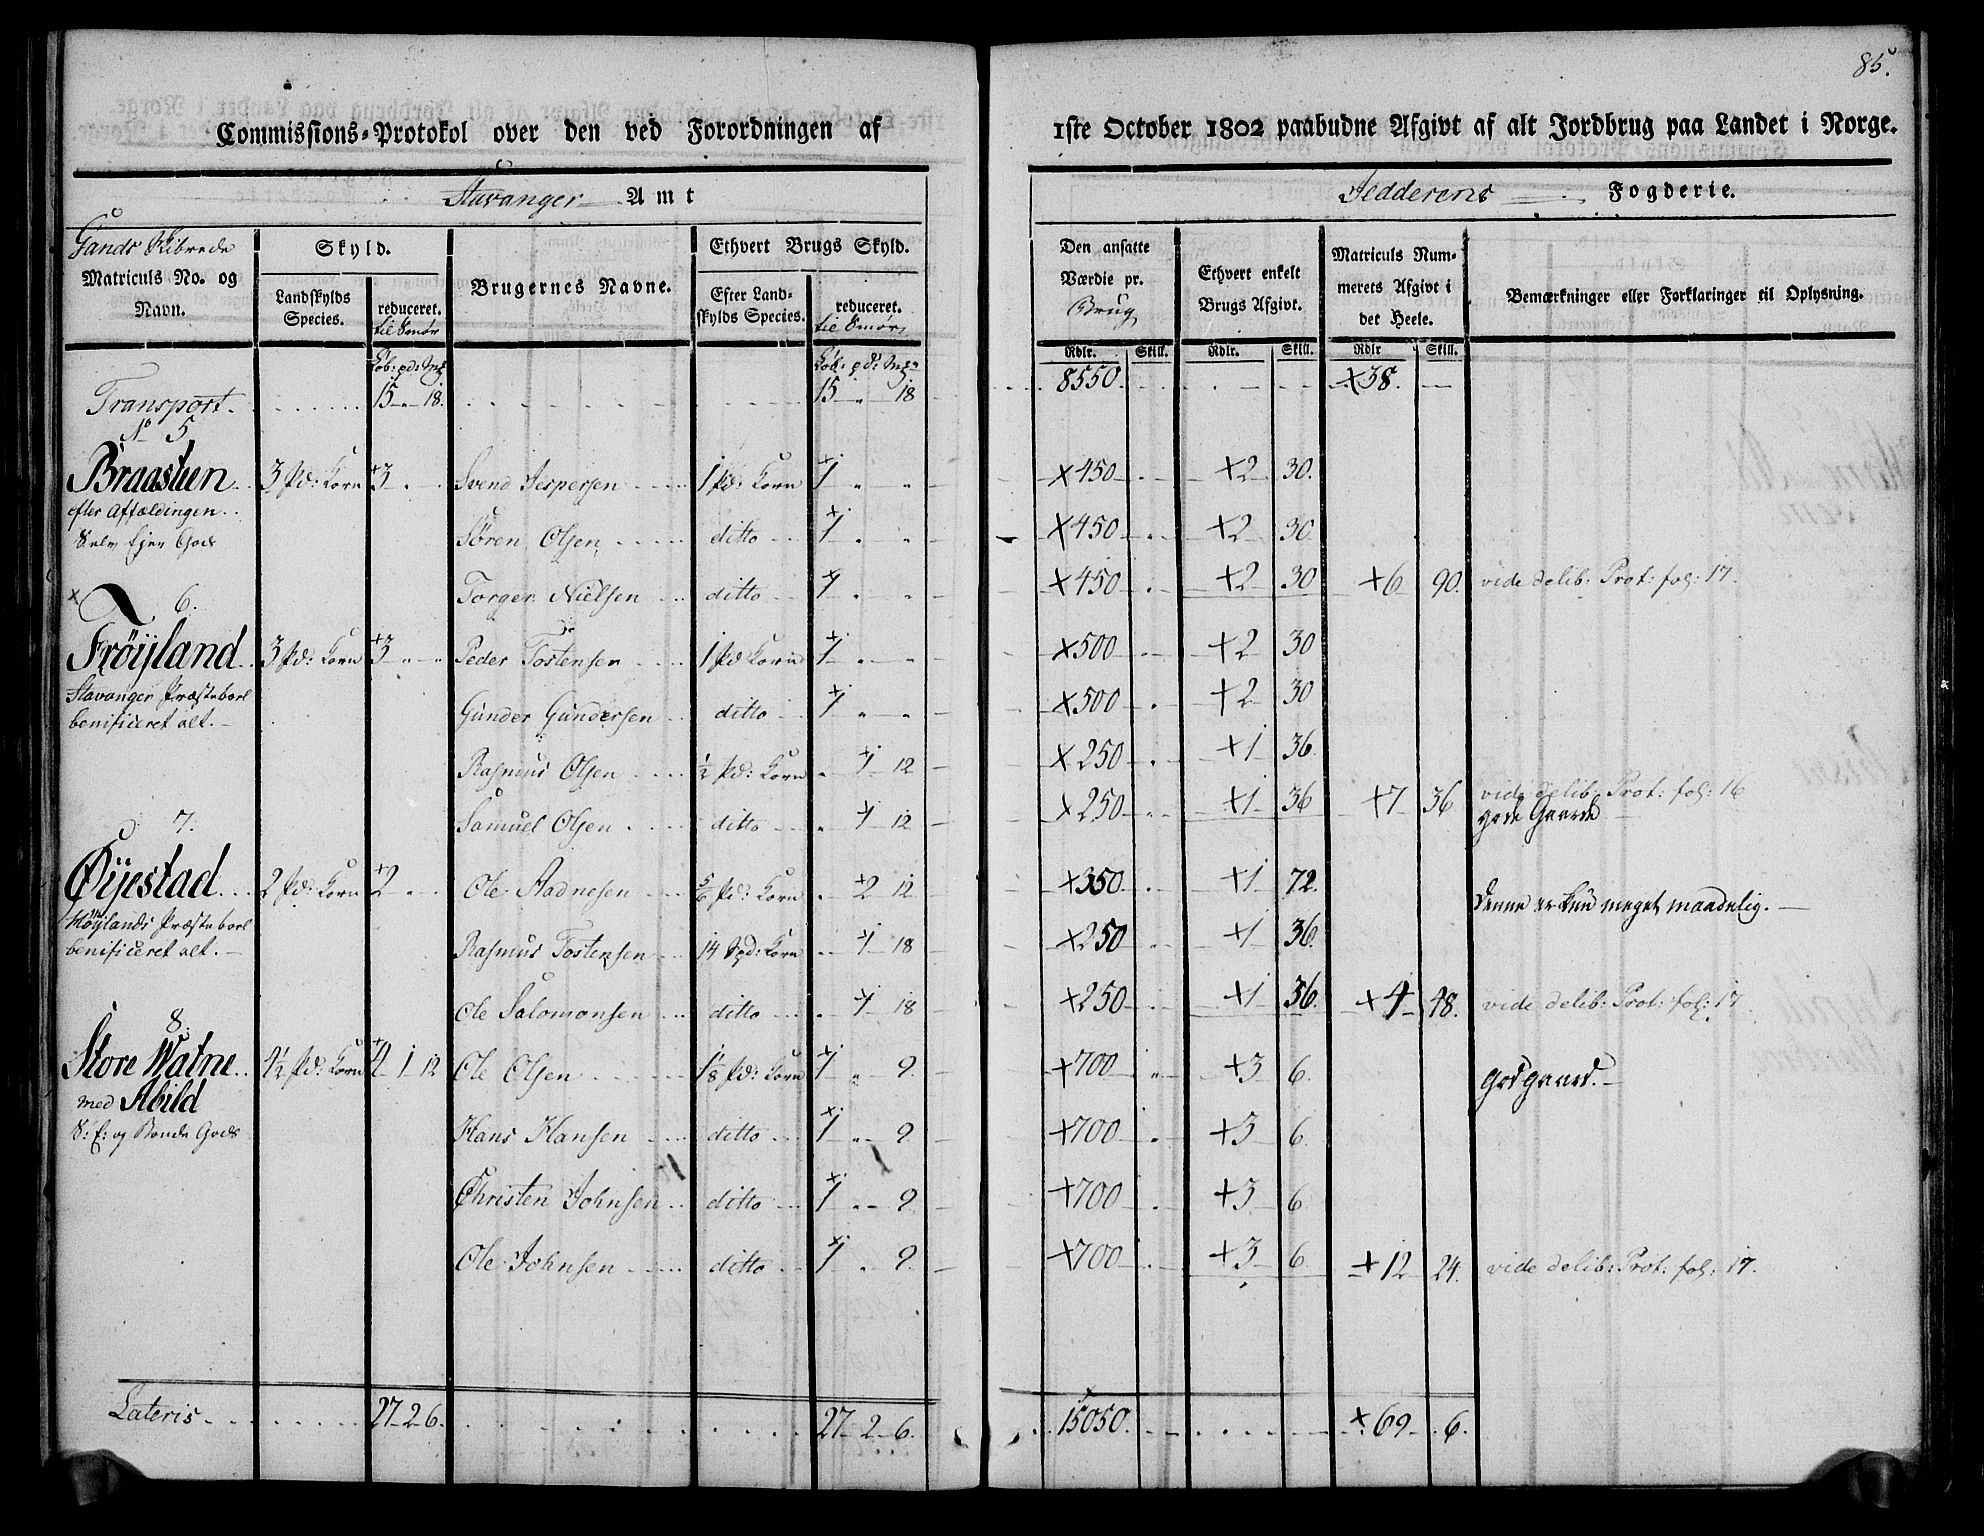 85.
Commissions-Protokol over den ved Forordningen af 1ste October 1802 paabudne Afgivt af alt Jordbrug paa Landet i Norge.
Stavanger Amt
Jedderens Fogderie.
Gands Skibrede
Matriculs No. og Navn.
Skyld.
Landskylds Species.
reduceret. til Smør
Brugernes Navne.
Ethvert Brugs Skyld.
Efter Landskylds Species.
reduceret. til Smør
Den ansatte Værdie pr. Brug
Ethvert enkelt Brugs Afgivt.
Matriculs Nummerets Afgivt i det Heele.
Bemærkninger eller Forklaringer til Oplysning.
Løb: pd: Mk Løb: pd: Mk Rdlr. Skill. Rdlr. Skill. Rdlr Skill.
Transport. 15 " 18. 15 " 18 8550. ×38. —
No 5
Braasteen 3 Pd: Korn +3 . . Svend Jespersen 1 Pd: Korn +1 " " ×450 . +2 30.
efter Affældingen Søren Olsen ditto +1 " " ×450 . +2 30
Selv Ejer Gods
Torger Nielsen ditto +1 " " ×450 . +2 30 +6 90. vide delib: Prot: fol: 17.
× 6.
Frøyland 3 Pd: Korn +3 " " Peder Tostensen 1 Pd Korn +1 " " ×500 . +2 30
Stavanger Præstebord Gunder Gundersen ditto +1 " " ×500 . +2 30
benificeret alt.
Rasmus Olsen ½ Pd: Korn . +1 12 ×250 +1 36.
Samuel Olsen ditto " +1 12 ×250 . +1 36 +7 36 vide delib: Prot: fol: 16
gode Gaarde
7.
Øyestad 2 Pd: Korn +2 " . Ole Aadnesen 5/6 Pd: Korn . +2 12 ×350 . +1 72. Denne er kun meget maadelig.
Høylands Præstebord Rasmus Tostensen 14 Spd: Korn " +1 18 ×250 . +1 36.
benificeret alt.
Ole Salomonsen ditto . +1 18 ×250 . +1 36 +4 48. vide delib: Prot: fol: 17
8.
Store Watne 4½ Pd: Korn +4 1 12 Ole Olsen 1⅛ Pd: Korn +1 " 9. +700 " +3 6. God gaard.
med Abild
S: E: og Bonde Gods Hans Hansen ditto +1 " 9 +700 . +3 6
Christen Johnsen ditto +1 " 9 +700 . +3 6
Ole Johnsen ditto +1 . 9. +700 . +3 6 +12 24. vide delib: Prot: fol: 17.
Lateris 27 2 6. 27 2 6. 15050. ×69 6.